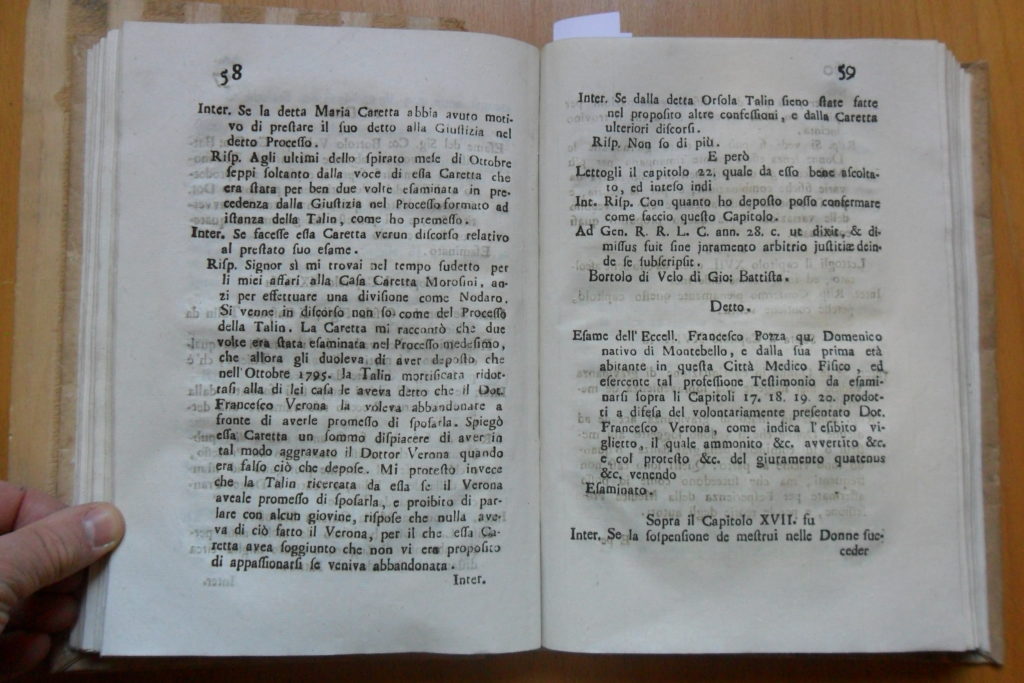 58
Inter. Se la detta Maria Caretta abbia avuto moti-
vo di prestare il suo detto alla Giustizia nel
detto Processo.
Risp. Agli ultimi dello spirato mese di Ottobre
seppi soltanto dalla voce di essa Caretta che
era stata per ben due volte esaminata in pre-
cedenza dalla Giustizia nel Processo formato ad
istanza della Talin, come ho premesso.
Inter. Se facesse essa Caretta verun discorso relativo
al prestato suo esame.
Risp. Signor sì mi trovai nel tempo sudetto per
li miei affari alla Casa Caretta Morosini, an-
zi per effettuare una divisione come Nodaro.
Si venne in discorso non so come del Processo
della Talin. La Caretta mi raccontò che due
volte era stata esaminata nel Processo medesimo,
che allora gli duoleva di aver deposto che
nell'Ottobre 1795. la Talin mortificata ridot-
tasi alla di lei casa le aveva detto che il Dot.
Francesco Verona la voleva abbandonare a
fronte di averle promesso di sposarla. Spiegò
essa Caretta un sommo dispiacere di aver in
tal modo aggravato il Dottor Verona quando
era falso ciò che depose. Mi protestò invece
che la Talin ricercata da essa se il Verona
aveale promesso di sposarla, e proibito di par-
lare con alcun giovine, rispose che nulla ave-
va di ciò fatto il Verona, per il che essa Ca-
retta avea soggiunto che non vi era proposito
di appassionarsi se veniva abbandonata.
Inter.
59
Inter. Se dalla detta Orsola Talin sieno state fatte
nel proposito altre confessioni, e dalla Caretta
ulteriori discorsi.
Risp. Non so di più.
E però
Lettogli il capitolo 22. quale da esso bene ascolta-
to, ed inteso indi
Int. Risp. Con quanto ho deposto posso confermare
come faccio questo Capitolo.
Ad Gen. R. R. L. C. ann. 28. c. ut dixit, & di-
missus fuit sine juramento arbitrio justitiæ dein-
de se subscripsit.
Bortolo di Velo di Gio: Battista.
Detto.
Esame dell'Eccell. Francesco Pozza qu. Domenico
nativo di Montebello, e dalla sua prima età
abitante in questa Città Medico Fisico, ed
esercente tal professione Testimonio da esami-
narsi sopra li Capitoli 17. 18. 19. 20. prodot-
ti a difesa del volontariamente presentato Dot.
Francesco Verona, come indica l'esibito vi-
glietto, il quale ammonito &c. avvertito &c.
e col protesto &c. del giuramento quatenus
&c. venendo
Esaminato.
Sopra il Capitolo XVII. fu
Inter. Se la sospensione de mestrui nelle Donne suc-
ceder